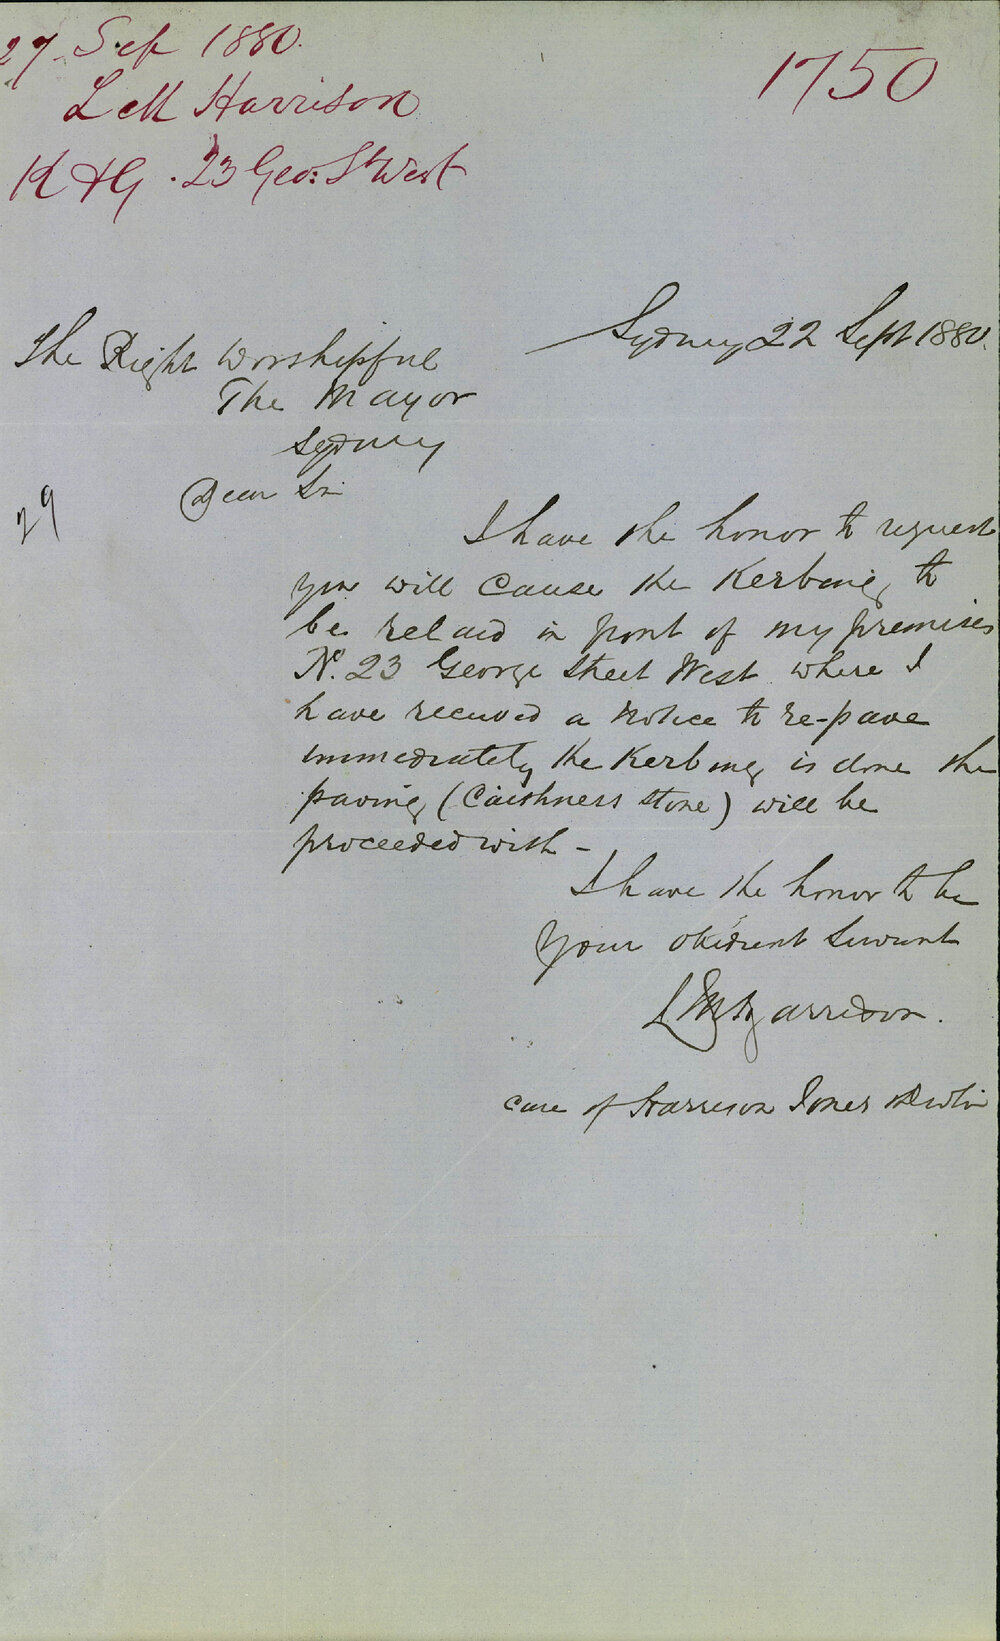 27 Sep 1880.
1750
L M Harrison
K & G. 23 Geo: St West
Sydney 22 Sept 1880.
The Right Worshipful
The Mayor
Sydney
29
Dear Sir
I have the honor to request
you will cause the Kerbing to
be relaid in front of my premises
No. 23 George Street West where I
have received a notice to re-pave
immediately the Kerbing is done the
paving (Caithness Stone) will be
proceeded with -
I have the honor to be
Your obedient Servant
L M Harrison.
care of Harrison Jones & Devlin